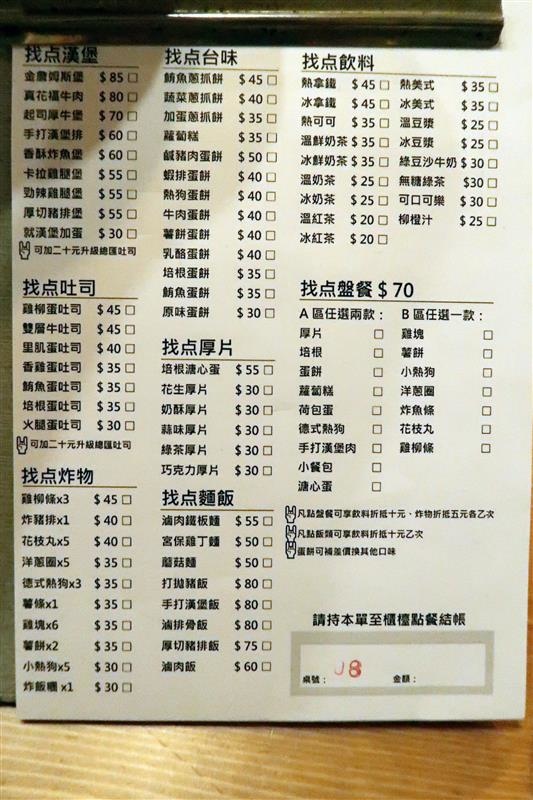 找点漢堡
金詹姆斯堡 $85 □
真花福牛肉 $80 □
起司厚牛堡 $70 □
手打漢堡排 $60 □
香酥炸魚堡 $60 □
卡拉雞腿堡 $55 □
勁辣雞腿堡 $55 □
厚切豬排堡 $55 □
就漢堡加蛋 $30 □
可加二十元升級總匯吐司
找点吐司
雞柳蛋吐司 $45 □
雙層牛吐司 $45 □
里肌蛋吐司 $40 □
香雞蛋吐司 $35 □
鮪魚蛋吐司 $35 □
培根蛋吐司 $35 □
火腿蛋吐司 $30 □
可加二十元升級總匯吐司
找点炸物
雞柳條x3 $45 □
炸豬排x1 $40 □
花枝丸x5 $40 □
洋蔥圈x5 $35 □
德式熱狗x3 $35 □
薯條x1 $35 □
雞塊x6 $35 □
薯餅x2 $35 □
小熱狗x5 $30 □
炸飯糰x1 $30 □
找点台味
鮪魚蔥抓餅 $45 □
蔬菜蔥抓餅 $40 □
加蛋蔥抓餅 $35 □
蘿蔔糕 $35 □
鹹豬肉蛋餅 $50 □
蝦排蛋餅 $40 □
熱狗蛋餅 $40 □
牛肉蛋餅 $40 □
薯餅蛋餅 $40 □
乳酪蛋餅 $40 □
培根蛋餅 $35 □
鮪魚蛋餅 $35 □
原味蛋餅 $30 □
找点厚片
培根溏心蛋 $55 □
花生厚片 $30 □
奶酥厚片 $30 □
蒜味厚片 $30 □
綠茶厚片 $30 □
巧克力厚片 $30 □
找点麵飯
滷肉鐵板麵 $55 □
宮保雞丁麵 $50 □
蘑菇麵 $50 □
打拋豬飯 $80 □
手打漢堡飯 $80 □
滷排骨飯 $80 □
厚切豬排飯 $75 □
滷肉飯 $60 □
找点飲料
熱拿鐵 $45 □ 熱美式 $35 □
冰拿鐵 $45 □ 冰美式 $35 □
熱可可 $35 □ 溫豆漿 $25 □
溫鮮奶茶 $35 □ 冰豆漿 $25 □
冰鮮奶茶 $35 □ 綠豆沙牛奶 $30 □
溫奶茶 $25 □ 無糖綠茶 $30 □
冰奶茶 $25 □ 可口可樂 $30 □
溫紅茶 $20 □ 柳橙汁 $25 □
冰紅茶 $20 □
找点盤餐 $70
A 區任選兩款： B 區任選一款：
厚片 □ 雞塊 □
培根 □ 薯餅 □
蛋餅 □ 小熱狗 □
蘿蔔糕 □ 洋蔥圈 □
荷包蛋 □ 炸魚條 □
德式熱狗 □ 花枝丸 □
手打漢堡肉 □ 雞柳條 □
小餐包 □
溏心蛋 □
凡點盤餐可享飲料折抵十元、炸物折抵五元各乙次
凡點飯類可享飲料折抵十元乙次
蛋餅可補差價換其他口味
請持本單至櫃檯點餐結帳
桌號： J8 金額：